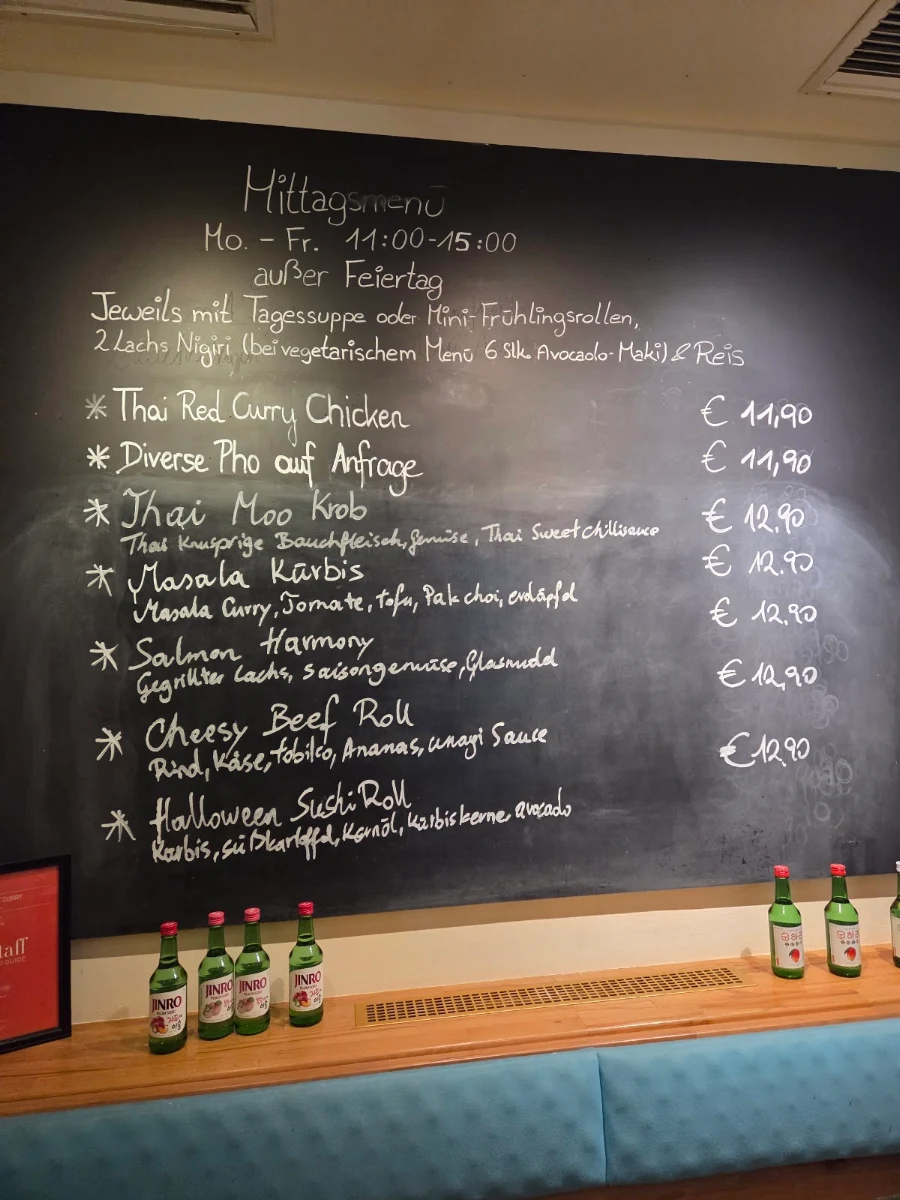 Mittagsmenü
Mo. - Fr. 11:00-15:00
außer Feiertag
Jeweils mit Tagessuppe oder Mini-Frühlingsrollen,
2 Lachs Nigiri (bei vegetarischem Menü 6 Stk. Avocado-Maki) & Reis
* Thai Red Curry Chicken € 11,90
* Diverse Pho auf Anfrage € 11,90
* Thai Moo Krob € 12,90
Thai Knusprige Bauchfleisch, Gemüse, Thai Sweet Chillisauce
* Masala Kürbis € 12.90
Masala Curry, Tomate, Tofu, Pak choi, erdäpfel
€ 12.90
* Salmon Harmony
Gegrillter Lachs, Saisongemüse, Glasnudel
€ 12,90
* Cheesy Beef Roll
Rind, Käse, Tobiko, Ananas, unagi Sauce
€ 12,90
* Halloween Sushi Roll
Kürbis, süßkartoffel, Kernöl, Kürbiskerne avocado
CURRY
taff
GUIDE
JINRO
JINRO
JINRO
JINRO